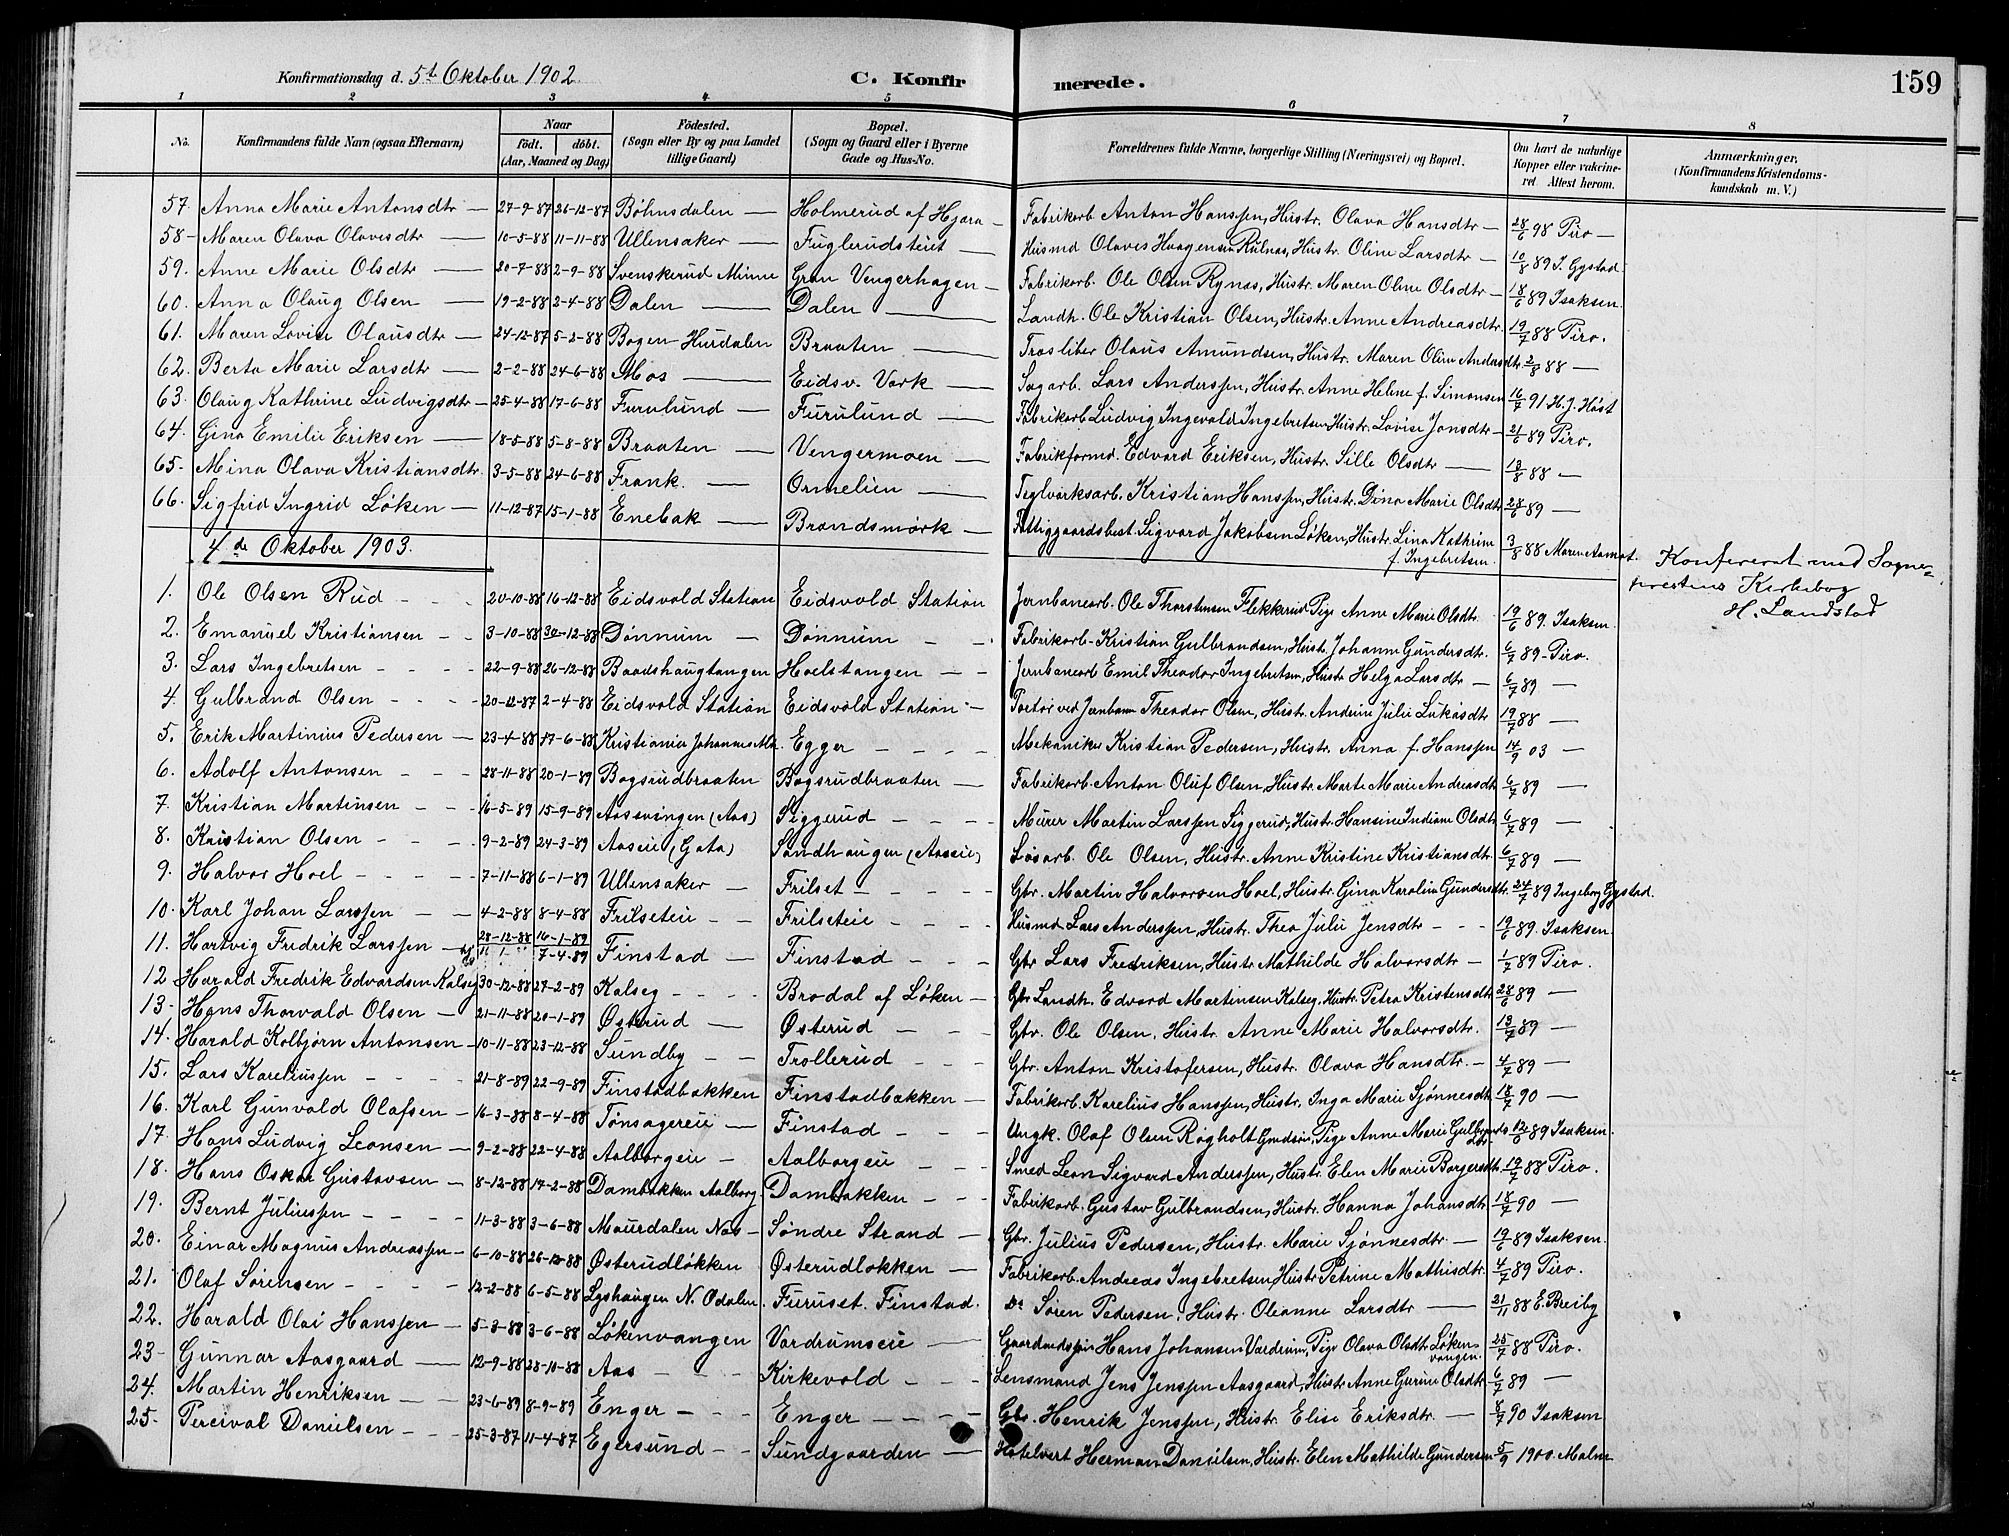 Konfirmationsdag d. 5te Oktober 1902. C. Konfirmerede. 159
1 2 3 4 5 6 7 8
No. Konfirmandens fulde Navn (ogsaa Efternavn) Naar født. døbt. (Aar, Maaned og Dag) Födested. (Sogn eller By og paa Landet tillige Gaard) Bopæl. (Sogn og Gaard eller i Byerne Gade og Hus-No. Forældrenes fulde Navne, borgerlige Stilling (Næringsvei) og Bopæl. Om havt de naturlige Kopper eller vakcineret. Attest herom. Anmærkninger, (Konfirmandens Kristendomskundskab m. V.)
57. Anna Marie Antonsdtr 27-9-87 26-12-87 Bøhnsdalen Holmerud af Hjera Fabrikarb Anton Hanssen, Hustr. Olava Hansdtr 28/6 98 Piro
58 Maren Olava Olavesdtr 10-5-88 11-11-88 Ullensaker Fuglerudsteiet Husmd Olaves Haagensen Rulnas, Hustr. Oline Larsdtr 10/8 89 I. Gystad
59. Anne Marie Olsdtr 20-7-88 2-9-88 Svenskerud Minne Gran Vengerhagen Fabrikarb. Ole Olsen Rynas, Hustr. Maren Oline Olsdtr 18/6 89 Isaksen.
60. Anna Olaug Olsen 19-2-88 2-4-88 Dalen Dalen Landh. Ole Kristian Olsen, Hustr. Anne Andreasdtr. 19/7 88 Piro.
61. Maren Lovise Olausdtr 24-12-87 5-2-88 Bogen Hurdalen Braaten Træsliber Olaus Amundsen, Hustr. Maren Oline Andersdtr 2/8 88
62. Berta Marie Larsdtr 2-2-88 24-6-88 Mos Eidsv. Værk Sagarb. Lars Anderssen, Hustr. Anne Helene f. Simonsen 16/7 91 H. J. Høst
63. Olaug Kathrine Ludvigsdtr 25-4-88 17-6-88 Furulund Furulund Fabrikarb Ludvig Ingevald Ingebretsen Hustr. Lovise Jonsdtr 21/6 89 Piro.
64. Gina Emilie Eriksen 18-5-88 5-8-88 Braaten Vengermoen Fabrikformd. Edvard Eriksen, Hustr. Sille Olsdtr 13/8 88
65. Mina Olava Kristiansdtr. 3-5-88 24-6-88 Frank. Ormelien Teglværksarb. Kristian Hanssen, Hustr. Dina Marie Olsdtr 28/6 89
66. Sigfrid Ingrid Løken 11-12-87 15-1-88 Enebak Brandsmørk Fattiggaardsbest. Sigvard Jakobsen Løken, Hustr. Lina Kathrine f. Ingebretsen. 3/8 88 Maren Aamot.
Konfereret med Sogne-
præstens Kirkebog
H. Landstad
4de Oktober 1903.
1. Ole Olsen Rud 20-10-88 16-12-88 Eidsvold Station Eidsvold Station Jernbanearb. Ole Thorstensen Flekkerud Pige Anne Marie Olsdtr. 19/6 89. Isaksen.
2. Emanuel Kristiansen 3-10-88 30-12-88 Dønnum Dønnum Fabrikarb. Kristian Gulbrandsen, Hustr. Johanne Gundersdtr. 6/7 89 Piro.
3. Lars Ingebretsen 22-9-88 26-12-88 Baadshaugtangen Hoelstangen Jernbanearb Emil Theodor Ingebretsen, Hustr Helga Larsdtr 6/7 89
4. Gulbrand Olsen 20-12-87 2-4-88 Eidsvold Station Eidsvold Station Portør ved Jernbanen Theodor Olsen, Hustr. Andrine Julie Lukasdtr 19/7 88
5. Erik Martinius Pedersen 23-4-88 17-6-88 Kristiania Johannes Mk. Egger Mekaniker Kristian Pedersen, Hustr. Anna f. Hanssen 14/9 03
6. Adolf Antonsen 28-11-88 20-1-89 Bøgsrudbraaten Bøgsrudbraaten Fabrikarb. Anton Oluf Olsen, Hustr. Marte Marie Andreasdtr 6/7 89
7. Kristian Martinsen 16-5-89 15-9-89 Aassvingen (Aas) Siggerud Murer Martin Larssen Siggerud, Hustr. Hansine Indiane Olsdtr 6/7 89
8. Kristian Olsen 9-2-89 24-3-89 Aaseie (Gata) Sandhaugen (Aaseie) Løsarb. Ole Olsen, Hustr. Anne Kristine Kristiansdtr. 6/7 89
9. Halvor Hoel 7-11-88 6-1-89 Ullensaker Frilset Gbr. Martin Halvorsen Hoel, Hustr. Gina Karoline Gundersdtr. 24/7 89 Ingeborg Gystad.
10. Karl Johan Larssen 4-2-88 8-4-88 Frilseteie Frilseteie Husmd Lars Anderssen, Hustr. Thea Julie Jensdtr 19/6 89. Isaksen.
11. Hartvig Fredrik Larssen 28-12-88 16-1-89 7-4-89 Finstad Finstad Gbr Lars Fredriksen, Hustr Mathilde Halvorsdtr 1/7 89 Piro.
12 Harald Fredrik Edvardsen Kalseg 30-12-88 27-2-89 Kalseg Brodal af Løken Gbr Landh. Edvard Martinsen Kalseg, Hustr. Petra Kristensdtr 28/6 89
13. Hans Thorvald Olsen 21-11-88 20-1-89 Østerud Østerud Gbr. Ole Olsen, Hustr. Anne Marie Halvorsdtr. 13/7 89
14. Harald Kolbjørn Antonsen 10-11-88 23-12-88 Sundby Trollerud Gbr. Anton Kristofersen, Hustr. Olava Hansdtr. 4/7 89
15. Lars Kareliussen 21-8-89 22-9-89 Finstadbakken Finstadbakken Fabrikarb. Karelius Hanssen, Hustr. Inga Marie Sjønnesdtr 18/7 90
16. Karl Gunvald Olafsen 16-3-88 8-4-88 Tønsagereie Finstad Ungk. Olaf Olsen Røgholt Gmdsøn, Pige Anne Marie Gulbrandsdtr. 12/6 89 Isaksen.
17. Hans Ludvig Leonsen 9-2-88 22-4-88 Aalborgeie Aalborgeie Smed Leon Sigvard Anderssen, Hustr. Elen Marie Borgersdtr. 19/7 88 Piro.
18. Hans Oskar Gustavsen 8-12-88 17-2-88 Dambakken Aalborg. Dambakken Fabrikarb. Gustav Gulbrandsen, Hustr. Hanna Johansdtr 18/7 90
19. Bernt Juliussen 11-3-88 3-6-88 Maurdalen Nas Søndre Strand Gbr. Julius Pedersen, Hustr. Marie Sjønnesdtr. 19/6 89 Isaksen.
20. Einar Magnus Andreassen 6-10-88 26-12-88 Østerudløkken Østerudløkken Fabrikarb. Andreas Ingebretsen, Hustr Petrine Mathisdtr. 4/7 89 Piro.
21. Olaf Sørensen 12-2-88 6-5-88 Lyshaugen N. Odalen. Furusst. Finstad. Do Søren Pedersen, Hustr. Oleanne Larsdtr 21/11 88 E. Breiby
22. Harald Olai Hanssen 5-3-88 3-6-88 Løkenvangen Vardrumseie Gaardmdssøn Hans Johansen Vardrum, Pige Olava Olsdtr Løkenvangen. 25/7 88 Piro.
23 Gunnar Aasgaard 12-9-88 28-10-88 Aas Kirkevold Lensmand Jens Jenssen Aasgaard, Hustr Anne Gurine Olsdtr 6/7 89
24. Martin Henriksen 23-6-89 8-9-89 Enger Enger Gbr. Henrik Jenssen, Hustr. Elise Eriksdtr. 8/7 90 Isaksen
25. Percival Danielsen 25-3-87 11-4-87 Egersund Sundgaarden Hotelvert Herman Danielsen, Hustr. Elen Mathilde Gundersen 5/9 1900. Malm